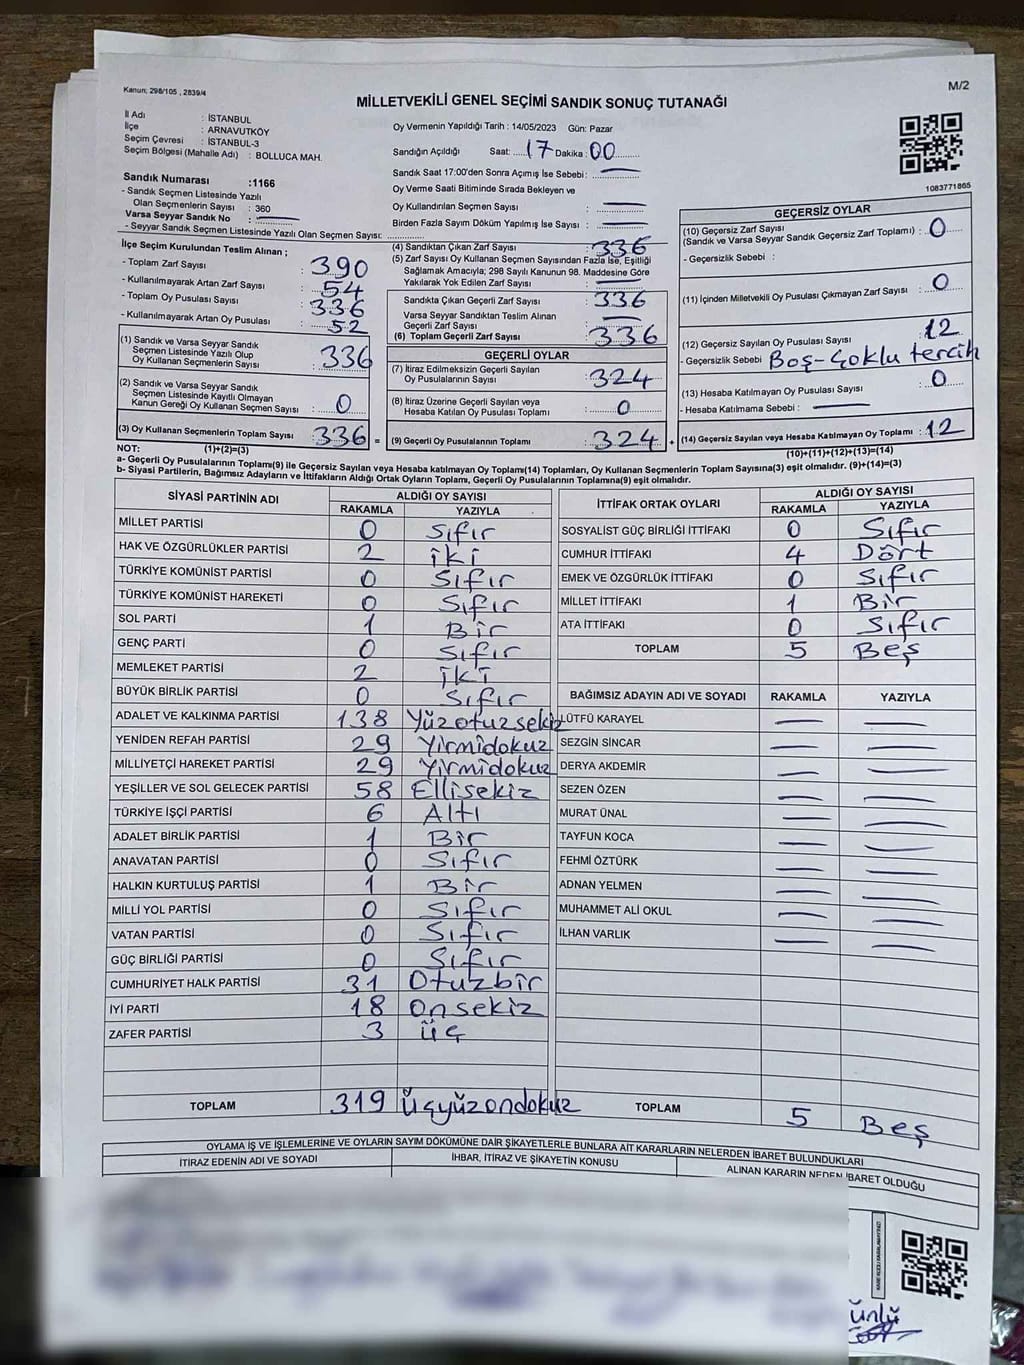 Kanun; 298/105 , 2839/4
M/2
MİLLETVEKİLİ GENEL SEÇİMİ SANDIK SONUÇ TUTANAĞI
İl Adı : İSTANBUL
İlçe : ARNAVUTKÖY
Seçim Çevresi : İSTANBUL-3
Seçim Bölgesi (Mahalle Adı) : BOLLUCA MAH.
Sandık Numarası :1166
- Sandık Seçmen Listesinde Yazılı
Olan Seçmenlerin Sayısı : 360
Varsa Seyyar Sandık No :
- Seyyar Sandık Seçmen Listesinde Yazılı Olan Seçmen Sayısı:
Oy Vermenin Yapıldığı Tarih : 14/05/2023 Gün: Pazar
Sandığın Açıldığı Saat: 17 Dakika : 00
Sandık Saat 17:00'den Sonra Açımış İse Sebebi :
Oy Verme Saati Bitiminde Sırada Bekleyen ve
Oy Kullandırılan Seçmen Sayısı :
Birden Fazla Sayım Döküm Yapılmış İse Sayısı :
1083771865
İlçe Seçim Kurulundan Teslim Alınan ;
- Toplam Zarf Sayısı : 390
- Kullanılmayarak Artan Zarf Sayısı : 54
- Toplam Oy Pusulası Sayısı : 336
- Kullanılmayarak Artan Oy Pusulası : 52
(1) Sandık ve Varsa Seyyar Sandık
Seçmen Listesinde Yazılı Olup
Oy Kullanan Seçmenlerin Sayısı : 336
(2) Sandık ve Varsa Seyyar Sandık
Seçmen Listesinde Kayıtlı Olmayan
Kanun Gereği Oy Kullanan Seçmen Sayısı : 0
(3) Oy Kullanan Seçmenlerin Toplam Sayısı : 336 =
(4) Sandıktan Çıkan Zarf Sayısı : 336
(5) Zarf Sayısı Oy Kullanan Seçmen Sayısından Fazla İse, Eşitliği
Sağlamak Amacıyla; 298 Sayılı Kanunun 98. Maddesine Göre
Yakılarak Yok Edilen Zarf Sayısı :
Sandıkta Çıkan Geçerli Zarf Sayısı : 336
Varsa Seyyar Sandıktan Teslim Alınan
Geçerli Zarf Sayısı :
(6) Toplam Geçerli Zarf Sayısı : 336
GEÇERLİ OYLAR
(7) İtiraz Edilmeksizin Geçerli Sayılan
Oy Pusulalarının Sayısı : 324
(8) İtiraz Üzerine Geçerli Sayılan veya
Hesaba Katılan Oy Pusulası Toplamı : 0
(9) Geçerli Oy Pusulalarının Toplamı : 324 +
GEÇERSİZ OYLAR
(10) Geçersiz Zarf Sayısı
(Sandık ve Varsa Seyyar Sandık Geçersiz Zarf Toplamı) : 0
- Geçersizlik Sebebi :
(11) İçinden Milletvekili Oy Pusulası Çıkmayan Zarf Sayısı : 0
(12) Geçersiz Sayılan Oy Pusulası Sayısı : 12
- Geçersizlik Sebebi : Boş-Çoklu tercih
(13) Hesaba Katılmayan Oy Pusulası Sayısı : 0
- Hesaba Katılmama Sebebi :
(14) Geçersiz Sayılan veya Hesaba Katılmayan Oy Toplamı : 12
NOT: (1)+(2)=(3)
(10)+(11)+(12)+(13)=(14)
a- Geçerli Oy Pusulalarının Toplamı(9) ile Geçersiz Sayılan veya Hesaba katılmayan Oy Toplamı(14) Toplamları, Oy Kullanan Seçmenlerin Toplam Sayısına(3) eşit olmalıdır. (9)+(14)=(3)
b- Siyasi Partilerin, Bağımsız Adayların ve İttifakların Aldığı Ortak Oyların Toplamı, Geçerli Oy Pusulalarının Toplamına(9) eşit olmalıdır.
SİYASİ PARTİNİN ADI ALDIĞI OY SAYISI
RAKAMLA YAZIYLA
MİLLET PARTİSİ 0 Sıfır
HAK VE ÖZGÜRLÜKLER PARTİSİ 2 iki
TÜRKİYE KOMÜNİST PARTİSİ 0 Sıfır
TÜRKİYE KOMÜNİST HAREKETİ 0 Sıfır
SOL PARTİ 1 Bir
GENÇ PARTİ 0 Sıfır
MEMLEKET PARTİSİ 2 iki
BÜYÜK BİRLİK PARTİSİ 0 Sıfır
ADALET VE KALKINMA PARTİSİ 138 Yüzotuzsekiz
YENİDEN REFAH PARTİSİ 29 Yirmidokuz
MİLLİYETÇİ HAREKET PARTİSİ 29 Yirmidokuz
YEŞİLLER VE SOL GELECEK PARTİSİ 58 Ellisekiz
TÜRKİYE İŞÇİ PARTİSİ 6 Altı
ADALET BİRLİK PARTİSİ 1 Bir
ANAVATAN PARTİSİ 0 Sıfır
HALKIN KURTULUŞ PARTİSİ 1 Bir
MİLLİ YOL PARTİSİ 0 Sıfır
VATAN PARTİSİ 0 Sıfır
GÜÇ BİRLİĞİ PARTİSİ 0 Sıfır
CUMHURİYET HALK PARTİSİ 31 Otuzbir
İYİ PARTİ 18 Onsekiz
ZAFER PARTİSİ 3 üç
TOPLAM 319 üçyüzondokuz
İTTİFAK ORTAK OYLARI ALDIĞI OY SAYISI
RAKAMLA YAZIYLA
SOSYALİST GÜÇ BİRLİĞİ İTTİFAKI 0 Sıfır
CUMHUR İTTİFAKI 4 Dört
EMEK VE ÖZGÜRLÜK İTTİFAKI 0 Sıfır
MİLLET İTTİFAKI 1 Bir
ATA İTTİFAKI 0 Sıfır
TOPLAM 5 Beş
BAĞIMSIZ ADAYIN ADI VE SOYADI RAKAMLA YAZIYLA
LÜTFÜ KARAYEL
SEZGİN SİNCAR
DERYA AKDEMİR
SEZEN ÖZEN
MURAT ÜNAL
TAYFUN KOCA
FEHMİ ÖZTÜRK
ADNAN YELMEN
MUHAMMET ALİ OKUL
İLHAN VARLIK
TOPLAM 5 Beş
OYLAMA İŞ VE İŞLEMLERİNE VE OYLARIN SAYIM DÖKÜMÜNE DAİR ŞİKAYETLERLE BUNLARA AİT KARARLARIN NELERDEN İBARET BULUNDUKLARI
İTİRAZ EDENİN ADI VE SOYADI İHBAR, İTİRAZ VE ŞİKAYETİN KONUSU ALINAN KARARIN NEDEN İBARET OLDUĞU
ünlü